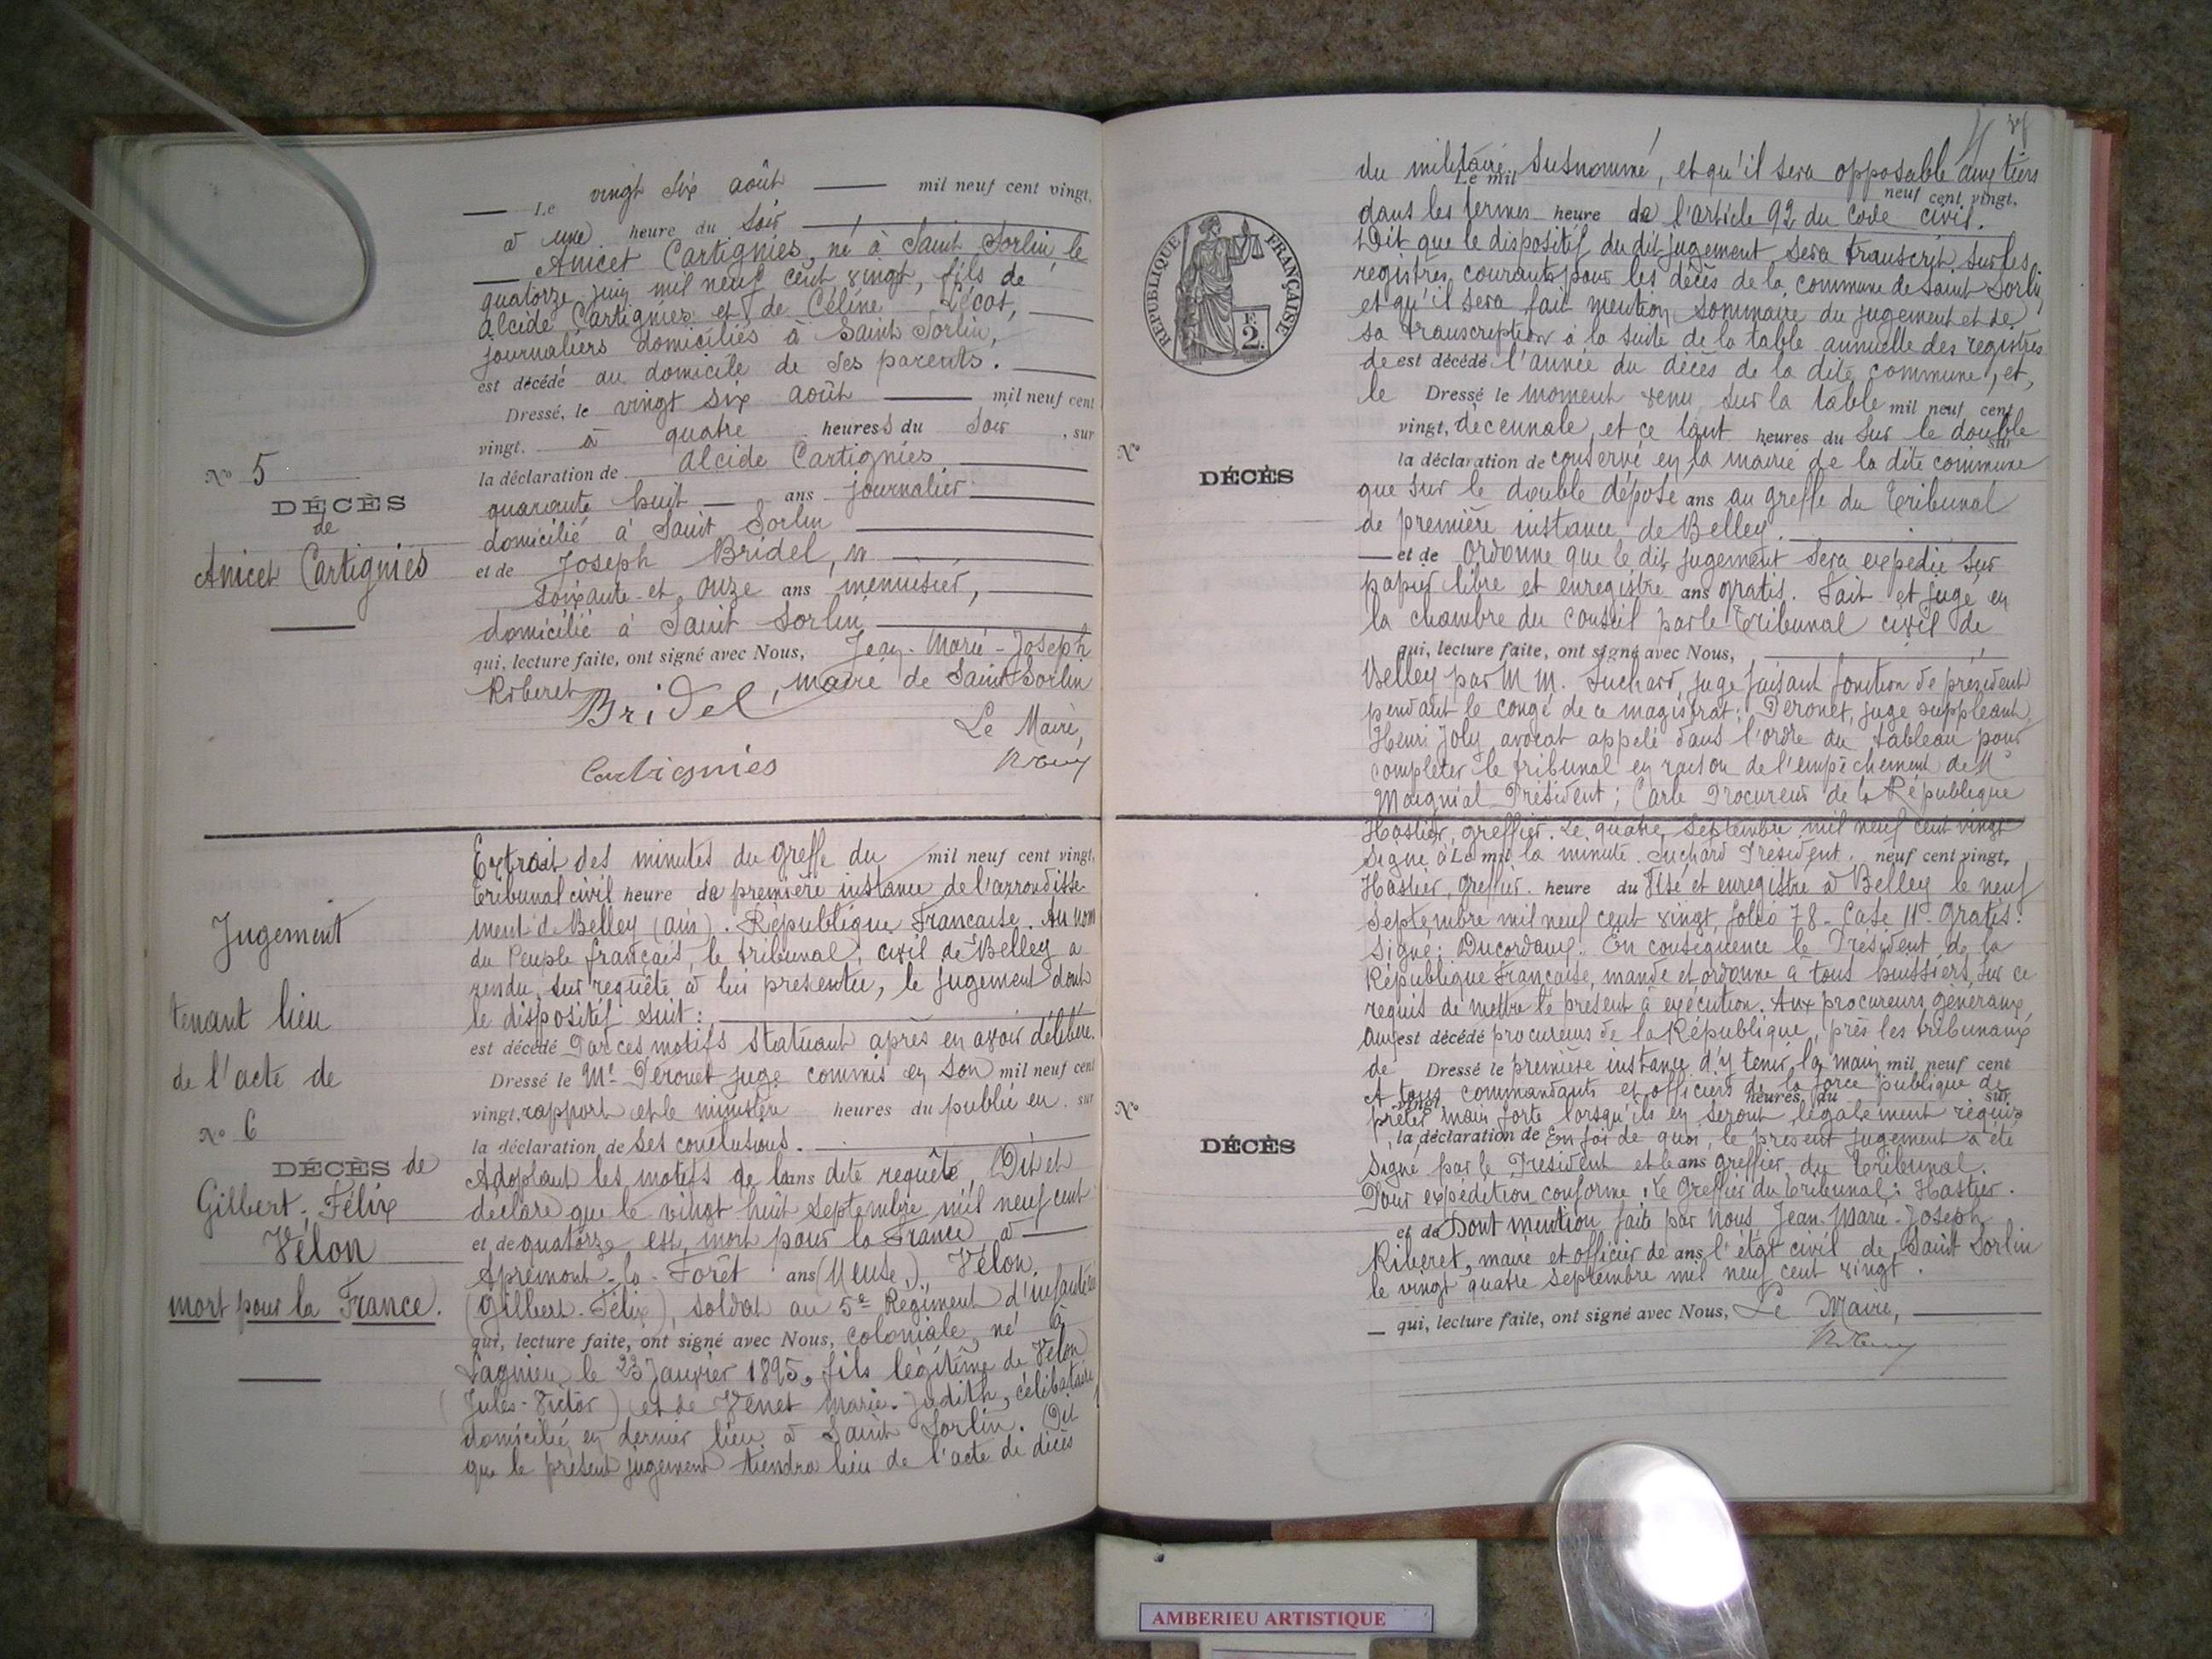 N° 5
DÉCÈS
de
Anicet Cartignies
Le vingt six août mil neuf cent vingt,
à une heure du soir
Anicet Cartignies, né à Saint Sorlin, le
quatorze juin mil neuf cent vingt, fils de
Alcide Cartignies et de Céline Lécot,
journaliers domiciliés à Saint Sorlin,
est décédé au domicile de ses parents.
Dressé, le vingt six août mil neuf cent
vingt. à quatre heures du soir, sur
la déclaration de Alcide Cartignies
quarante huit ans journalier
domicilié à Saint Sorlin
et de Joseph Bridel,
soixante et onze ans menuisier,
domicilié à Saint Sorlin
qui, lecture faite, ont signé avec Nous, Jean-Marie-Joseph
Riberet, maire de Saint Sorlin
Bridel
Le Maire,
Cartignies
Jugement
tenant lieu
de l'acte de
N° 6
DÉCÈS de
Gilbert-Félix
Vélon
mort pour la France.
Extrait des minutes du Greffe du mil neuf cent vingt,
Tribunal civil heure de première instance de l'arrondisse-
ment de Belley (ain). République Française. Au nom
du Peuple français, le tribunal civil de Belley a
rendu, sur requête à lui présentée, le jugement dont
le dispositif suit:
est décédé Par ces motifs statuant après en avoir délibéré.
Dressé le Mr Peronet juge commis en son mil neuf cent
vingt, rapport et le ministère heures du publié en sur
la déclaration de ses conclusions.
Adoptant les motifs de la ans dite requête, Dit et
déclare que le vingt huit septembre mil neuf cent
et de quatorze est mort pour la France à
Apremont-la-Forêt ans (Meuse), Vélon
(Gilbert-Félix), soldat au 5e Régiment d'infanterie
qui, lecture faite, ont signé avec Nous, coloniale, né à
Lagnieu le 23 Janvier 1895, fils légitime de Vélon
(Jules-Victor) et de Venet Marie-Judith, célibataire
domicilié en dernier lieu à Saint Sorlin. Dit
que le présent jugement tiendra lieu de l'acte de décès
RÉPUBLIQUE FRANÇAISE
2.
N°
DÉCÈS
du militaire susnommé, et qu'il sera opposable aux tiers
Le mil neuf cent vingt,
dans les termes heure de l'article 92 du Code civil.
Dit que le dispositif du dit jugement sera transcrit sur les
registres courants pour les décès de la commune de Saint Sorlin
et qu'il sera fait mention sommaire du jugement et de
sa transcription à la suite de la table annuelle des registres
de est décédé l'année du décès de la dite commune, et,
le Dressé le moment venu sur la table mil neuf cent
vingt, décennale, et ce tant heures du sur le double
sur
la déclaration de conservé en la mairie de la dite commune
que sur le double déposé ans au greffe du Tribunal
de première instance de Belley.
et de Ordonne que le dit jugement sera expédié sur
papier libre et enregistré ans gratis. Fait et jugé en
la chambre du conseil par le Tribunal civil de
qui, lecture faite, ont signé avec Nous,
Belley par M M. Juchard, juge faisant fonction de président
pendant le congé de ce magistrat; Peronet, juge suppléant,
Henri Joly avocat appelé dans l'ordre du tableau pour
compléter le tribunal en raison de l'empêchement de Mr
Maignial Président; Carle Procureur de la République
Hastier, greffier. Le quatre Septembre mil neuf cent vingt
Signé à Le mil la minute. Juchard Président. neuf cent vingt,
Hastier, Greffier. heure du Visé et enregistré à Belley le neuf
Septembre mil neuf cent vingt, folio 78. Case 11. Gratis.
Signé: En conséquence le Président de la
République Française, mande et ordonne à tous huissiers, sur ce
requis de mettre le présent à exécution. Aux procureurs généraux,
aux est décédé procureurs de la République, près les tribunaux
de Dressé le première instance d'y tenir la main mil neuf cent
A tous commandants et officiers de la force publique de
vingt heures du sur
prêter main forte lorsqu'ils en seront légalement requis
la déclaration de En foi de quoi, le présent jugement a été
signé par le Président et le ans greffier du Tribunal.
Pour expédition conforme: le Greffier du Tribunal: Hastier.
et de Dont mention faite par nous Jean-Marie-Joseph
Riberet, maire et officier de ans l'état civil de Saint Sorlin
le vingt quatre septembre mil neuf cent vingt.
qui, lecture faite, ont signé avec Nous, Le Maire,
N°
DÉCÈS
AMBERIEU ARTISTIQUE